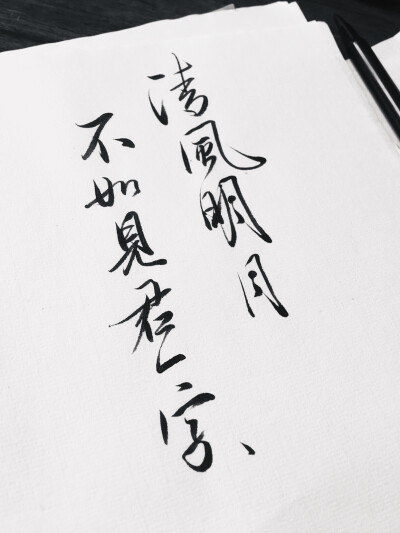 清風明月
不如見君一字